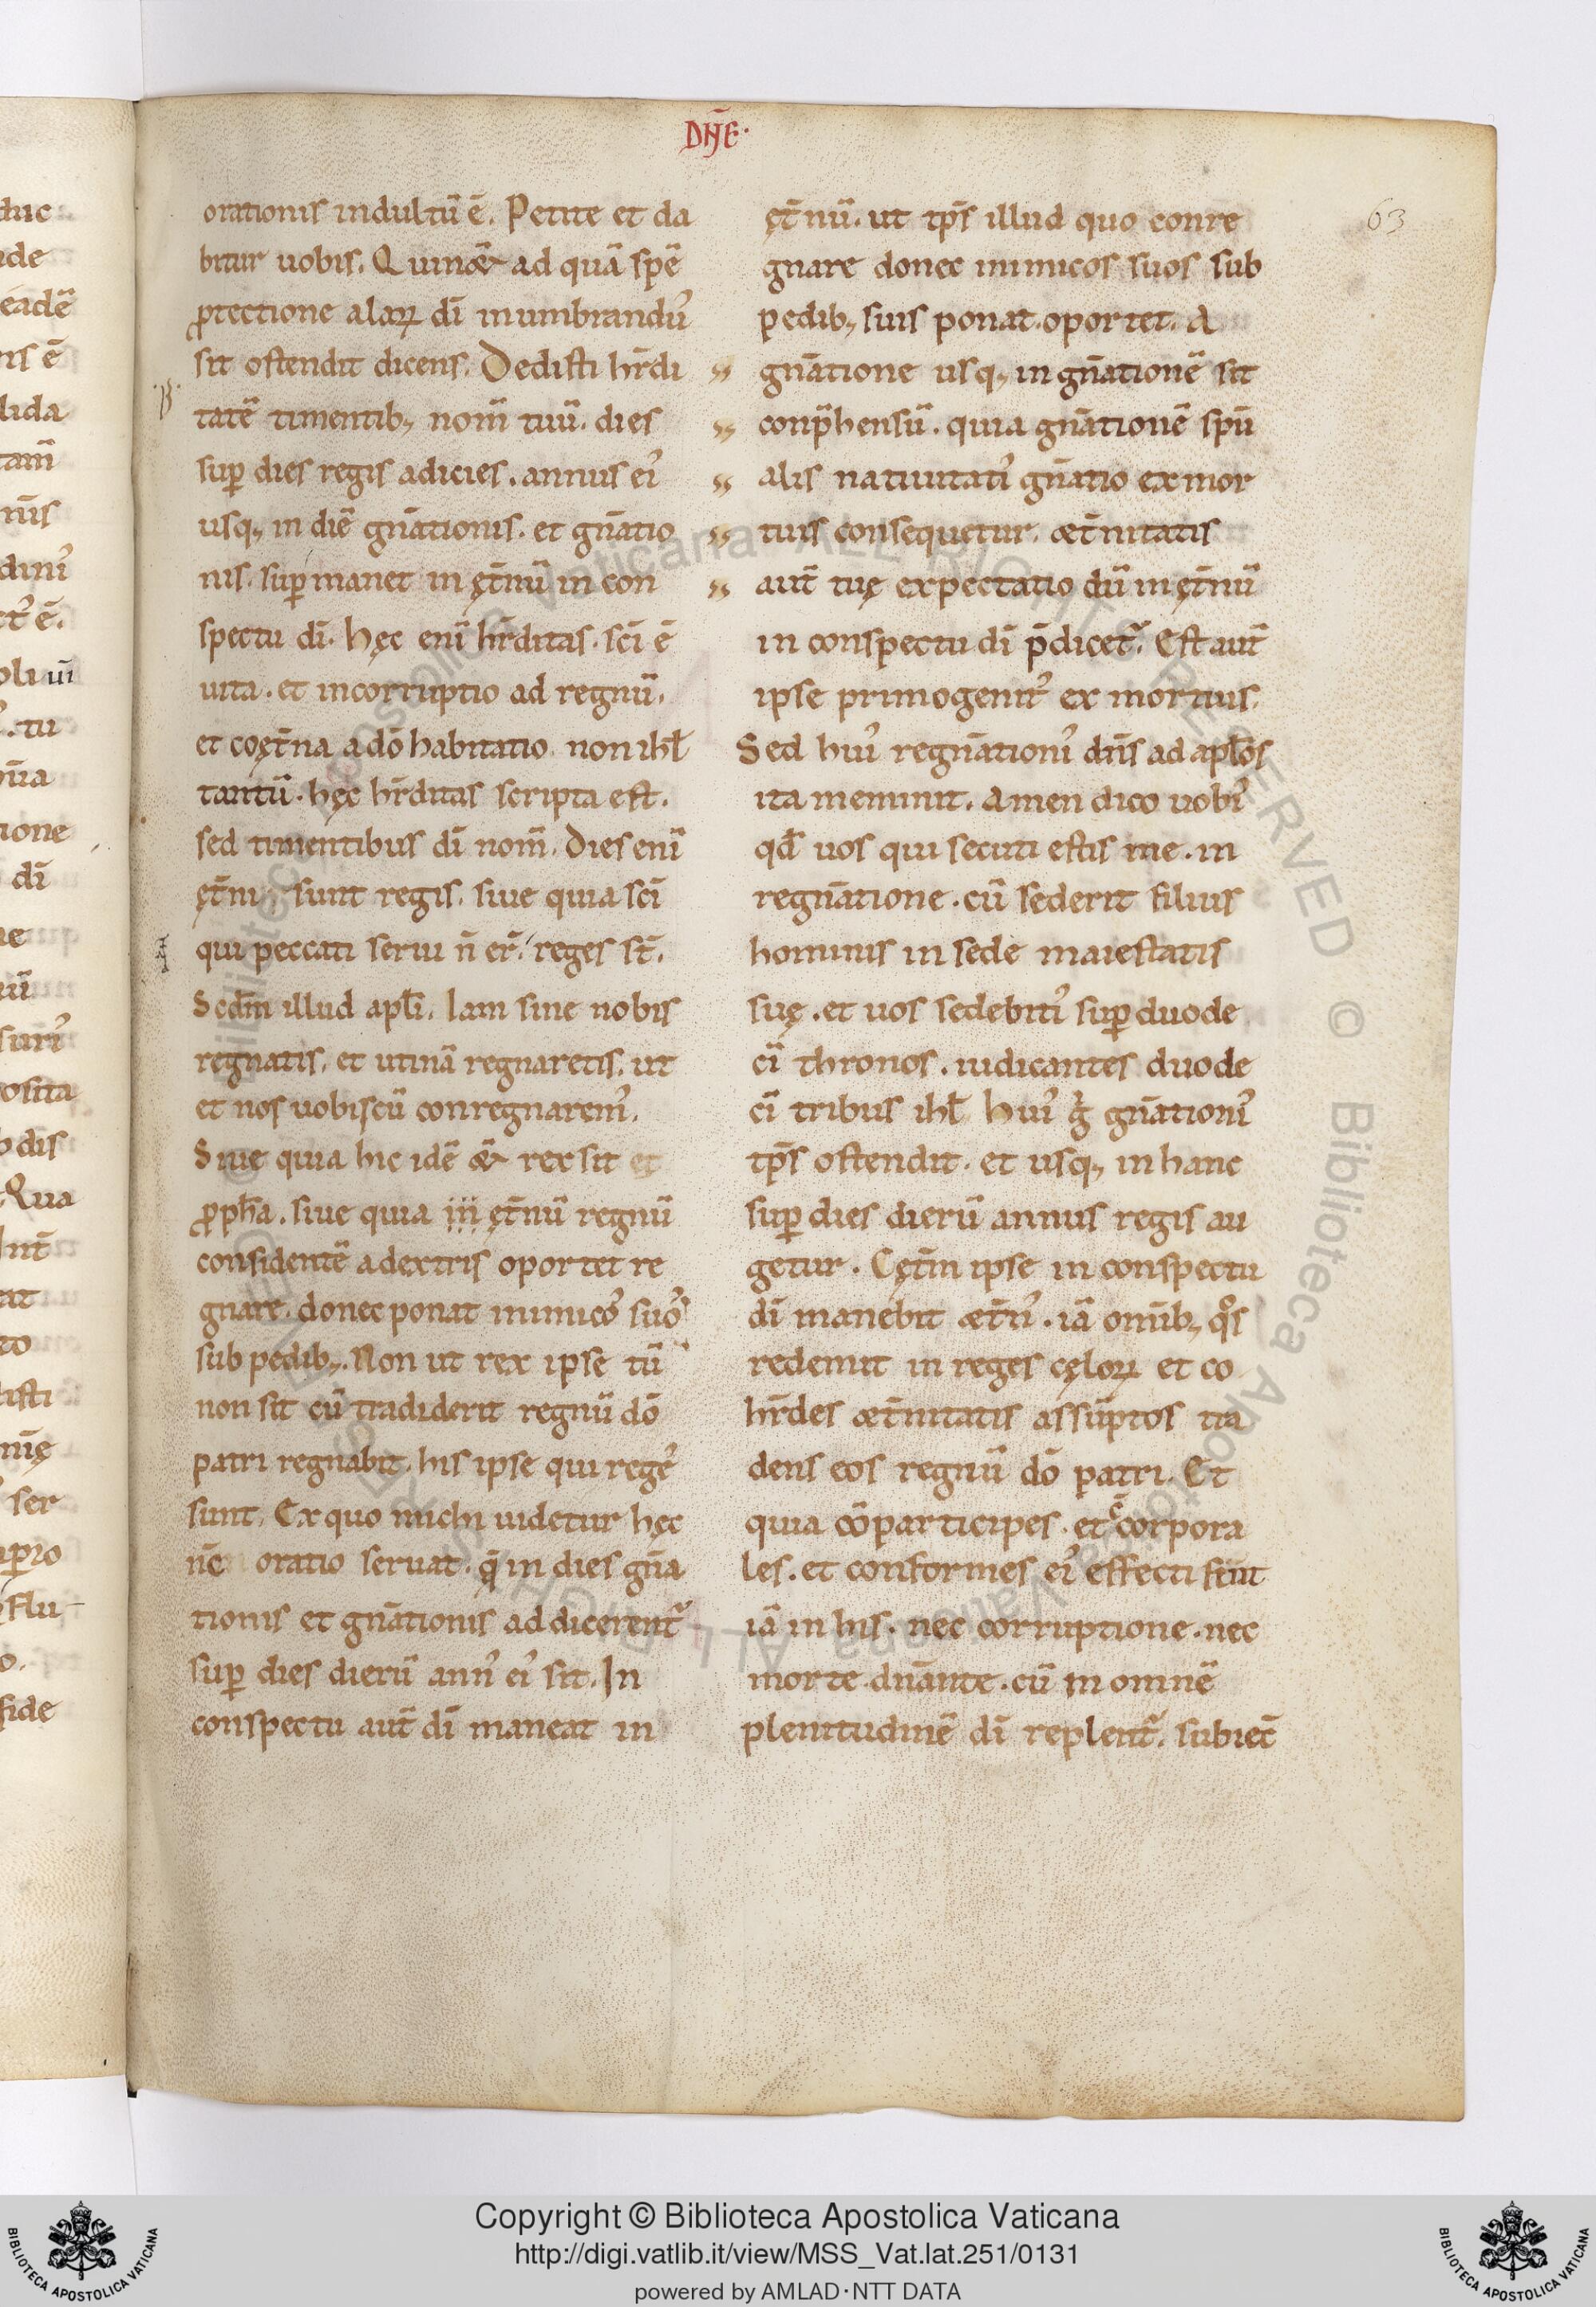 DN̄E·
63
orationis indultū ē. Petite et da
bitur uobis. Quin & ad quā spē
ꝓtectione alaꝝ dī inumbrandu᾿
sit ostendit dicens. Dedisti hr̄di
tatē timentib; nom̄ tuū. dies
suꝑ dies regis adicies. annus ei᾿
usq; in diē gn̄ationis. et gn̄atio
nis. suꝑmanet in ęt̄nū in con
spectu dī. hęc enī hr̄ditas. sc̄i ē
uita. et incorruptio ad regnū.
et coęt̄na a dō habitatio. non ihl̄
tantū. hęc hr̄ditas scripta est.
sed timentibus dī nom̄. Dies enī
ęt̄ni sunt regis. siue quia sc̄i
qui peccati serui n̄ er̄. reges st̄.
Scdm̄ illud apl̄i. Iam sine nobis
regnatis. et utinā regnaretis. ut
et nos uobiscū conregnarem᾿.
Siue quia hic idē & rex sit et
ꝓph̄a. siue quia in ęt̄nū regnū
considentē a dextris oportet re
gnare. donec ponat inimico᾿ suo᾿
sub pedib;. Non ut rex ipse tū
non sit cū tradiderit regnū dō
patri regnabit. his ipse qui rege᾿
sunt. Ex quo michi uidetur hęc
nē oratio seruat. q̄ in dies gn̄a
tionis et gn̄ationis addicerent᾿
suꝑ dies dierū ann᾿ ei᾿ sit. In
conspectu aut̄ dī maneat in
ęt̄nū. ut tp̄s illud quo conre
gnare donec inimicos suos sub
pedib; suis ponat. oportet. A
gn̄atione usq; in gn̄ationē sit
conp̄hensū. quia gn̄ationē spū
alis natiuitati᾿ gn̄atio ex mor
tuis consequetur. æt̄nitatis
aut̄ tuę expectatio dū in ęt̄nū
in conspectu dī p̄dicet᾿. Est aut̄
ipse primogenit᾿ ex mortuis.
Sed hui᾿ regn̄ationi᾿ dn̄s ad apl̄os
ita meminit. Amen dico uobi᾿
qd̄ uos qui secuti estis me. in
regn̄atione. cū sederit filius
hominis in sede maiestatis
suę. et uos sedebiti᾿ suꝑ duode
cī thronos. iudicantes duode
cī tribus ihl̄. Hui᾿ g̊ gn̄ationi᾿
tp̄s ostendit. et usq; in hanc
suꝑ dies dierū annus regis au
getur. Cęt̄m ipse in conspectu
dī manebit æt̄n᾿. iā omīb; qͦs
redemit in reges cęloꝝ et co
hr̄des æt̄nitatis assūptos tra
dens eos regnū dō patri. Et
quia cōparticipes. et cōcorpora
les. et conformes ei᾿ effecti sint
iā in his. nec corruptione. nec
morte dn̄ante. cū in omnē
plenitudinē dī replent᾿. subiec̄
Copyright © Biblioteca Apostolica Vaticana
http://digi.vatlib.it/view/MSS_Vat.lat.251/0131
powered by AMLAD·NTT DATA